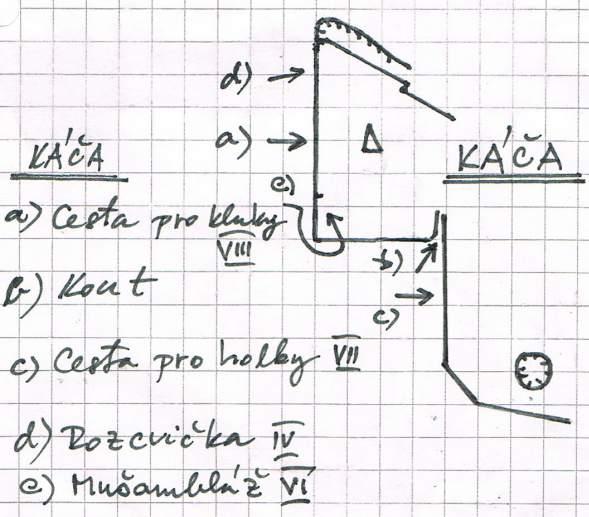 d)
a)
KÁČA
KÁČA
e)
a) Cesta pro kluky
VIII
b)
b) Kout
c)
c) Cesta pro holky VII
d) Rozcvička IV
e) Mušambláž VI